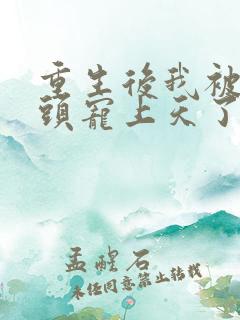 重生後我被
頭寵上天了
孟醒石
未經同意禁止轉載